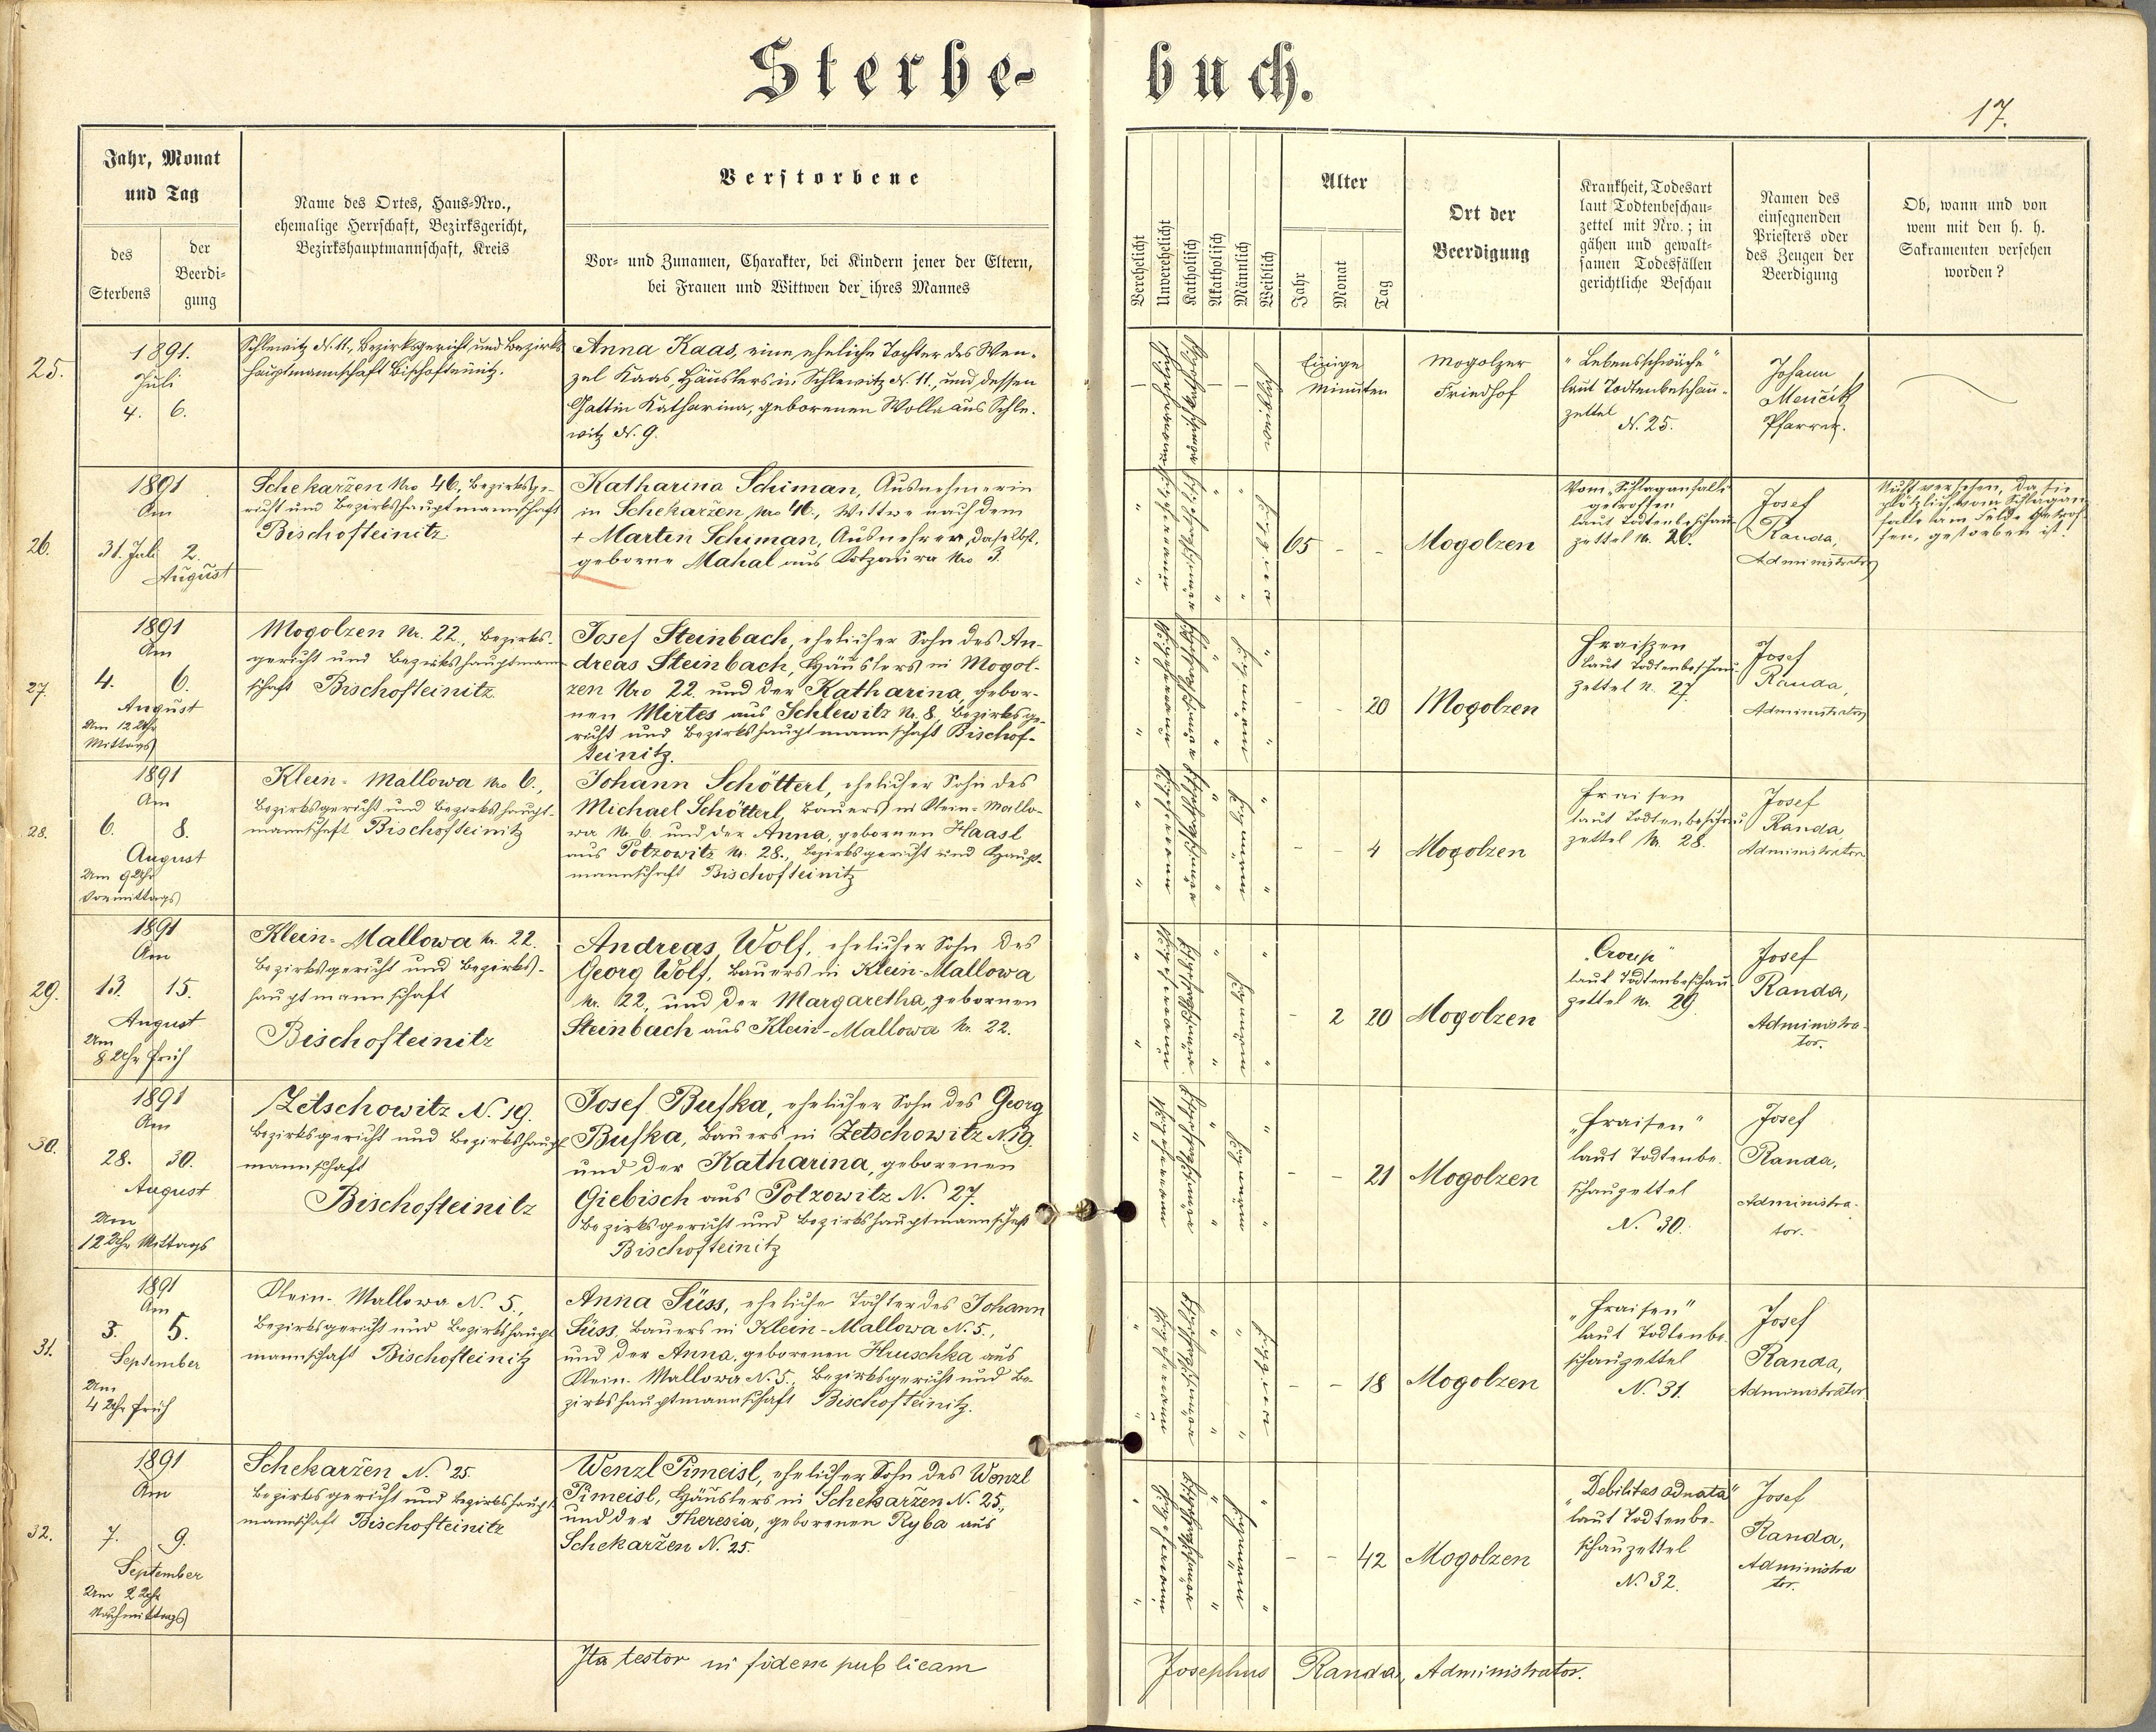 Sterbe-buch.
17.
Jahr, Monat
und Tag
des
Sterbens
der
Beerdi-
gung
Name des Ortes, Haus-Nro.,
ehemalige Herrschaft, Bezirksgericht,
Bezirkshauptmannschaft, Kreis
Verstorbene
Vor- und Zunamen, Charakter, bei Kindern jener der Eltern,
bei Frauen und Wittwen der ihres Mannes
Verehelicht
Unverehelicht
Katholisch
Akatholisch
Männlich
Weiblich
Alter
Jahr
Monat
Tag
Ort der
Beerdigung
Krankheit, Todesart
laut Todtenbeschau-
zettel mit Nro.; in
gähen und gewalt-
samen Todesfällen
gerichtliche Beschau
Namen des
einsegnenden
Priesters oder
des Zeugen der
Beerdigung
Ob, wann und von
wem mit den h. h.
Sakramenten versehen
worden?
25.
1891.
Juli
4. 6.
Schlewitz N. 11., Bezirksgericht und Bezirks
hauptmannschaft Bischofteinitz.
Anna Kaas, eine eheliche Tochter des Wen-
zel Kaas, Häuslers in Schlewitz N. 11., und dessen
Gattin Katharina, geborenen Wolla aus Schle-
witz N. 9.
Einige
Minuten
Mogolzer
Friedhof
"Lebensschwäche"
laut Todtenbeschau-
zettel
N. 25.
Johann
Menčik
Pfarrer.
26.
1891
Am
31. Juli 2.
August
Schekaržen Nro 46., Bezirksge-
richt und Bezirkshauptmannschaft
Bischofteinitz
Katharina Schiman, Ausnehmerin
in Schekaržen Nro 46., Wittwe nach dem
+ Martin Schiman, Ausnehmer, daselbst,
geborne Mahal aus Kotzaura Nro 3.
65 - -
Mogolzen
Vom Schlaganfalle
getroffen
laut Todtenbeschau
zettel N. 26.
Josef
Randa,
Administrator
Nicht versehen, da sie
plötzlich vom Schlagan-
falle am Felde getrof-
fen, gestorben ist.
27.
1891
Am
4. 6.
August
Um 12 Uhr
Mittags
Mogolzen Nr. 22., Bezirks-
gericht und Bezirkshauptmann-
schaft Bischofteinitz
Josef Steinbach, ehelicher Sohn des An-
dreas Steinbach, Häuslers in Mogol-
zen Nro 22. und der Katharina, gebor-
nen Mirtes aus Schlewitz Nr. 8, Bezirksge-
richt und Bezirkshauptmannschaft Bischof-
teinitz.
- - 20
Mogolzen
Fraißen
laut Todtenbeschau
Zettel N. 27.
Josef
Randa,
Administrator
28.
1891
Am
6. 8.
August
Um 9 Uhr
Vormittags
Klein-Mallowa Nro 6.,
Bezirksgericht und Bezirkshaupt-
mannschaft Bischofteinitz
Johann Schötterl, ehelicher Sohn des
Michael Schötterl, Bauers in Klein-Mallo-
wa Nr. 6. und der Anna, gebornen Haasl
aus Potzowitz Nr. 28., Bezirksgericht und Haupt-
mannschaft Bischofteinitz
- - 4
Mogolzen
Fraisen
laut Todtenbeschau
zettel Nr. 28.
Josef
Randa,
Administrator
29.
1891
Am
13. 15.
August
Um
8 Uhr früh
Klein-Mallowa Nr. 22.
Bezirksgericht und Bezirks-
hauptmannschaft
Bischofteinitz
Andreas Wolf, ehelicher Sohn des
Georg Wolf, Bauers in Klein-Mallowa
Nr. 22., und der Margaretha, gebornen
Steinbach aus Klein-Mallowa Nr. 22.
- 2 20
Mogolzen
"Croup"
laut Todtenbeschau
zettel Nr. 29.
Josef
Randa,
Administra-
tor.
30.
1891
Am
28. 30.
August
Um
12 Uhr Mittags
Zetschowitz N. 19.
Bezirksgericht und Bezirkshaupt
mannschaft
Bischofteinitz
Josef Bufka, ehelicher Sohn des Georg
Bufka, Bauers in Zetschowitz N. 19.
und der Katharina, geborenen
Giebisch aus Potzowitz N. 27.
Bezirksgericht und Bezirkshauptmannschaft
Bischofteinitz
- - 21
Mogolzen
"Fraisen"
laut Todtenbe-
schauzettel
N. 30.
Josef
Randa,
Administra-
tor.
31.
1891
Am
3. 5.
September
Um
4 Uhr früh
Klein-Mallowa N. 5.,
Bezirksgericht und Bezirkshaupt
mannschaft Bischofteinitz
Anna Süss, eheliche Tochter des Johann
Süss, Bauers in Klein-Mallowa N. 5.,
und der Anna, geborenen Hruschka aus
Klein-Mallowa N. 5., Bezirksgericht und Be-
zirkshauptmannschaft Bischofteinitz.
- - 18
Mogolzen
"Fraisen"
laut Todtenbe-
schauzettel
N. 31.
Josef
Randa,
Administrator
32.
1891
Am
7. 9.
September
Um 2 Uhr
Nachmittags
Schekaržen N. 25.
Bezirksgericht und Bezirkshaupt-
mannschaft Bischofteinitz
Wenzl Pimeisl, ehelicher Sohn des Wenzl
Pimeisl, Häuslers in Schekaržen N. 25.,
und der Theresia, geborenen Ryba aus
Schekaržen N. 25.
- - 42
Mogolzen
"Debilitas adnata"
laut Todtenbe-
schauzettel
N. 32.
Josef
Randa,
Administra
tor.
Ita testor in fidem publicam
Josephus Randa, Administrator.